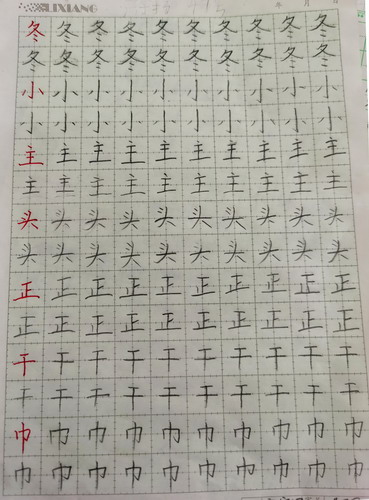 LIXIANG 年 月
冬冬冬冬冬冬冬冬冬冬
冬冬冬冬冬冬冬冬冬冬
小小小小小小小小小小
小小小小小小小小小小
主主主主主主主主主主
主主主主主主主主主主
头头头头头头头头头头
头头头头头头头头头头
正正正正正正正正正正
正正正正正正正正正正
干干干干干干干干干干
干干干干干干干干干干
巾巾巾巾巾巾巾巾巾巾
巾巾巾巾巾巾巾巾巾巾